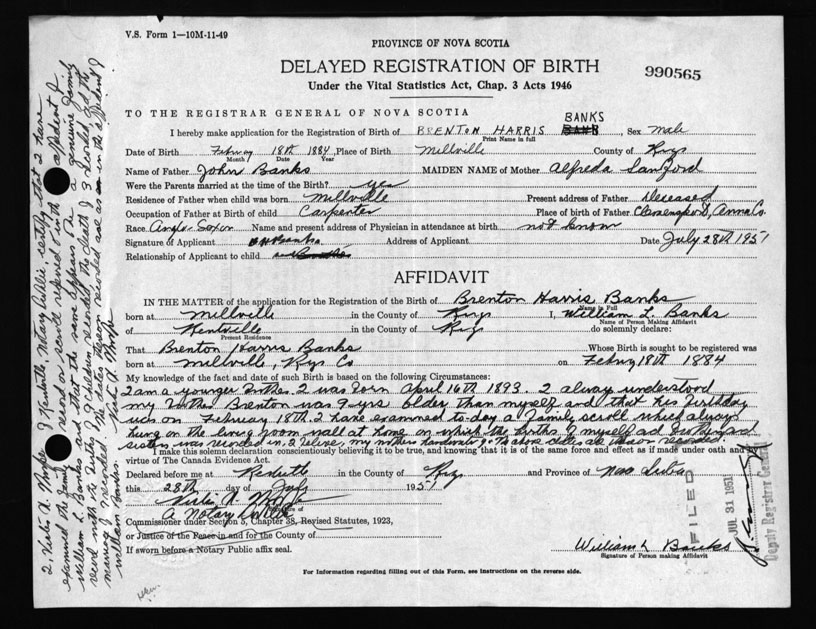 V.S. Form 1—10M-11-49
PROVINCE OF NOVA SCOTIA
DELAYED REGISTRATION OF BIRTH
990565
Under the Vital Statistics Act, Chap. 3 Acts 1946
TO THE REGISTRAR GENERAL OF NOVA SCOTIA
BANKS
I hereby make application for the Registration of Birth of BRENTON HARRIS, Sex Male
Print Name in full
Date of Birth February 18th 1884, Place of Birth Millville County of Kings
Month Date Year
Name of Father John Banks MAIDEN NAME of Mother Alfreda Sanford
Were the Parents married at the time of the Birth? yes
Residence of Father when child was born Millville Present address of Father Deceased
Occupation of Father at Birth of child Carpenter Place of birth of Father Clementsport, Anna Co.
Race Anglo-Saxon Name and present address of Physician in attendance at birth not know
Signature of Applicant Address of Applicant Date July 28th 1951
Relationship of Applicant to child
AFFIDAVIT
IN THE MATTER of the application for the Registration of the Birth of Brenton Harris Banks
Name in Full
born at Millville in the County of Kings I, William L. Banks
Name of Person Making Affidavit
of Kentville do solemnly declare:
Present Residence
That Brenton Harris Banks Whose Birth is sought to be registered was
born at Millville, Kings Co on Febry 18th 1884
My knowledge of the fact and date of such Birth is based on the following Circumstances:
I am a younger brother I was born April 16th 1893. I always understood
my brother Brenton was 9 yrs older than myself and that his birthday
was on February 18th. I have examined to-day a family scroll which always
hung on the living room wall at home on which the births of myself and brothers and
sisters was recorded in, I believe, my mothers handwriting
I make this solemn declaration conscientiously believing it to be true, and knowing that it is of the same force and effect as if made under oath and by
virtue of The Canada Evidence Act.
Declared before me at Kentville in the County of Kings and Province of Nova Scotia
this 28th day of July 1951
A Notary Public
Commissioner under Section 5, Chapter 38, Revised Statutes, 1923,
or Justice of the Peace in and for the County of
If sworn before a Notary Public affix seal.
William L Banks
Signature of Person making Affidavit
FILED
JUL 31 1951
Deputy Registrar General
For Information regarding filling out of this Form, see instructions on the reverse side.
Notary Public certify that I have
examined the family record or scroll referred to by
William L. Banks and that the same appears to be a genuine family
record with the births of children recorded
William Banks.